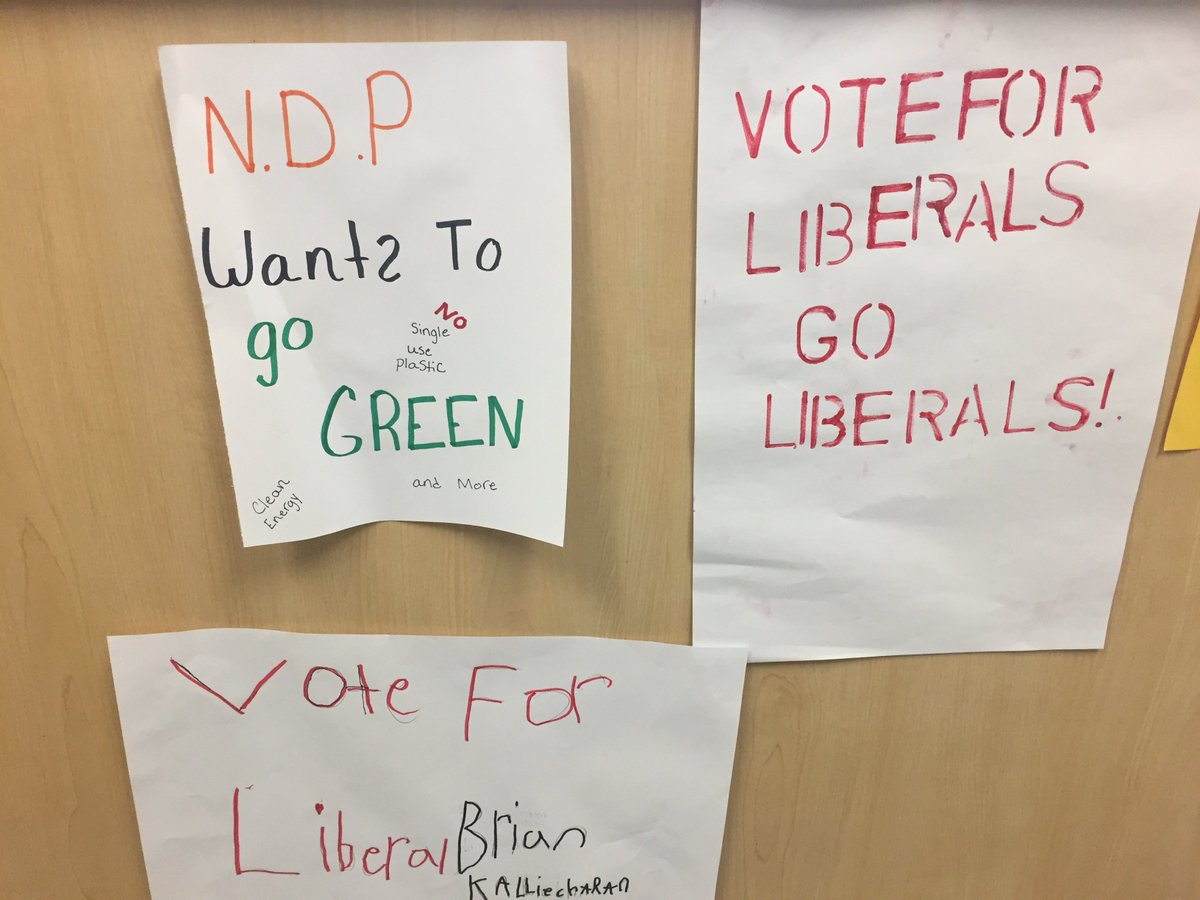 N.D.P
Wants To
go
NO
Single
use
Plastic
GREEN
and More
Clean
Energy
VOTE FOR
LIBERALS
GO
LIBERALS!
Vote For
Liberal Brian
KALLiechARAN